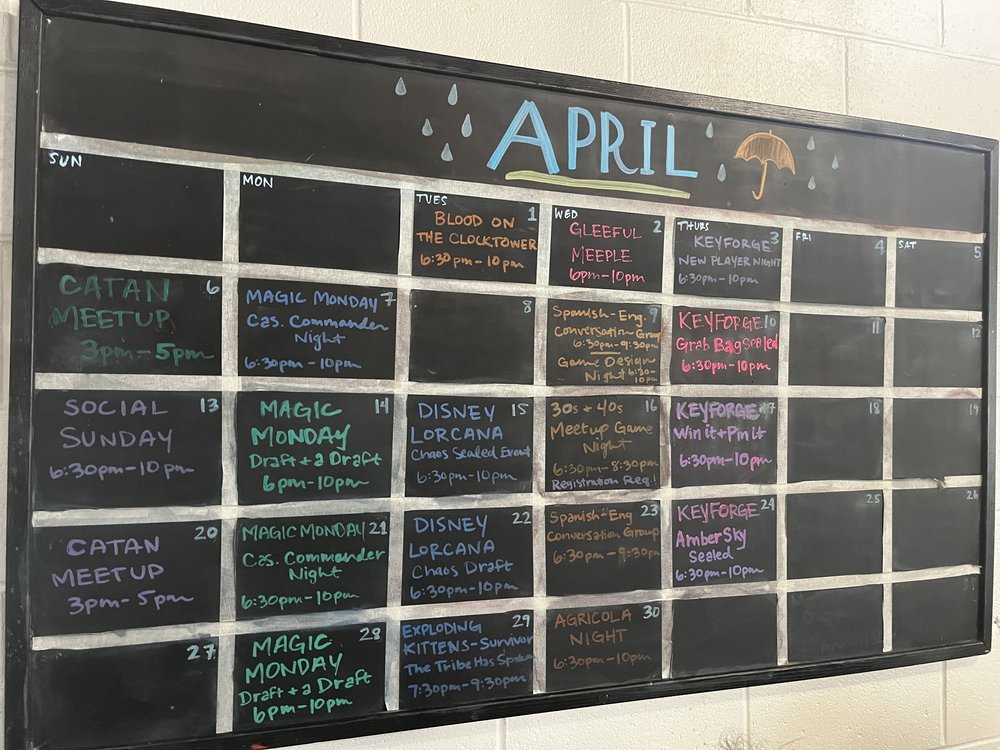 APRIL
SUN
MON
TUES
1
BLOOD ON
THE CLOCKTOWER
6:30pm-10pm
WED
2
GLEEFUL
MEEPLE
6pm-10pm
THURS
3
KEYFORGE
NEW PLAYER NIGHT
6:30pm-10pm
FRI
4
SAT
5
6
CATAN
MEETUP
3pm-5pm
7
MAGIC MONDAY
Cas. Commander
Night
6:30pm-10pm
8
9
Spanish-Eng.
Conversation Group
6:30pm-9:30pm
Game Design
Night 6:30-
10pm
10
KEYFORGE
Grab Bag Sealed
6:30pm-10pm
11
12
13
SOCIAL
SUNDAY
6:30pm-10pm
14
MAGIC
MONDAY
Draft + a Draft
6pm-10pm
15
DISNEY
LORCANA
Chaos Sealed Event
6:30pm-10pm
16
30s + 40s
Meetup Game
Night
6:30pm-8:30pm
Registration Req!
17
KEYFORGE
Win it + Pin it
6:30pm-10pm
18
19
20
CATAN
MEETUP
3pm-5pm
21
MAGIC MONDAY
Cas. Commander
Night
6:30pm-10pm
22
DISNEY
LORCANA
Chaos Draft
6:30pm-10pm
23
Spanish-Eng
Conversation Group
6:30pm-9:30pm
24
KEYFORGE
AmberSky
Sealed
6:30pm-10pm
25
26
27
28
MAGIC
MONDAY
Draft + a Draft
6pm-10pm
29
EXPLODING
KITTENS-Survivor
The Tribe Has Spoken
7:30pm-9:30pm
30
AGRICOLA
NIGHT
6:30pm-10pm